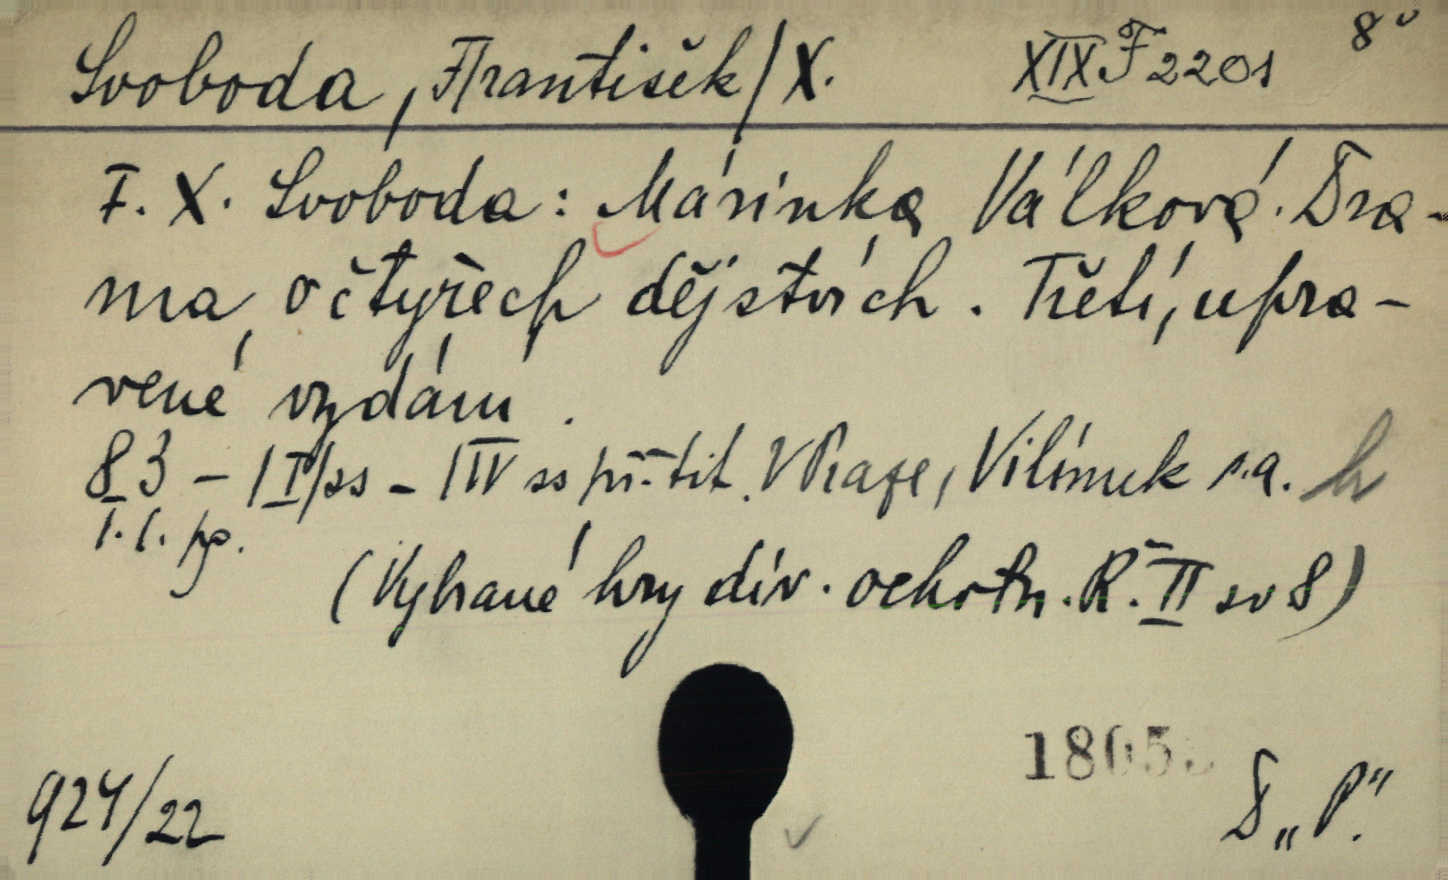 Svoboda, František/X. XIX F 2201 8°
F. X. Svoboda: Márinka Válková. Dra-
ma o čtyřech dějstvích. Třetí, upra-
vené vydání.
83 - /I/ss - /IV ss př. tit. V Praze, Vilímek s.a.
(Vybrané hry div. ochotn. Ř. II sv 8)
924/22
D „P."